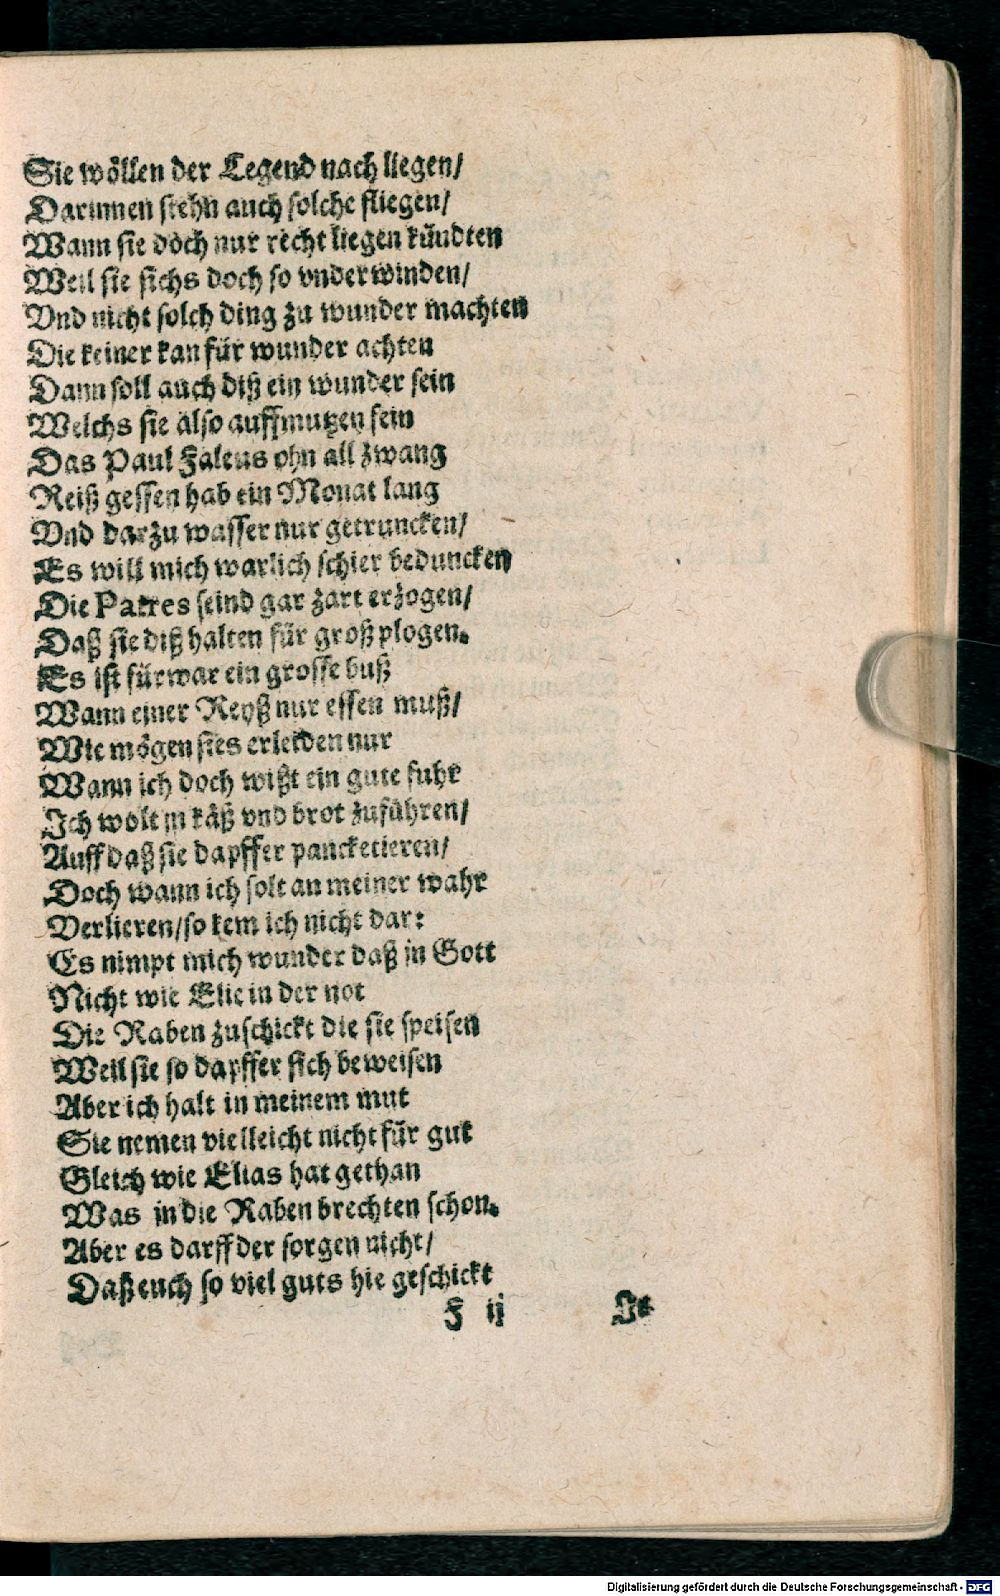 Sie wöllen der Legend nach liegen/
Darinnen stehn auch solche fliegen/
Wann sie doch nur recht liegen kündten
Weil sie sichs doch so vnderwinden/
Vnd nicht solch ding zu wunder machten
Die keiner kan für wunder achten
Dann soll auch diß ein wunder sein
Welchs sie also auffmutzen fein
Das Paul Falcus ohn all zwang
Reiß gessen hab ein Monat lang
Vnd darzu wasser nur getruncken/
Es will mich warlich schier beduncken
Die Patres seind gar zart erzogen/
Daß sie diß halten für groß plogen.
Es ist fürwar ein grosse buß
Wann einer Reyß nur essen muß/
Wie mögen sies erleiden nur
Wann ich doch wißt ein gute fuhr
Ich wolt jn käß vnd brot zuführen/
Auff daß sie dapffer pancketieren/
Doch wann ich solt an meiner wahr
Verlieren/so kem ich nicht dar:
Es nimpt mich wunder daß jn Gott
Nicht wie Elie in der not
Die Raben zuschickt die sie speisen
Weil sie so dapffer sich beweisen
Aber ich halt in meinem mut
Sie nemen vielleicht nicht für gut
Gleich wie Elias hat gethan
Was jn die Raben brechten schon.
Aber es darff der sorgen nicht/
Daß euch so viel guts hie geschickt
F ij Je
Digitalisierung gefördert durch die Deutsche Forschungsgemeinschaft - DFG